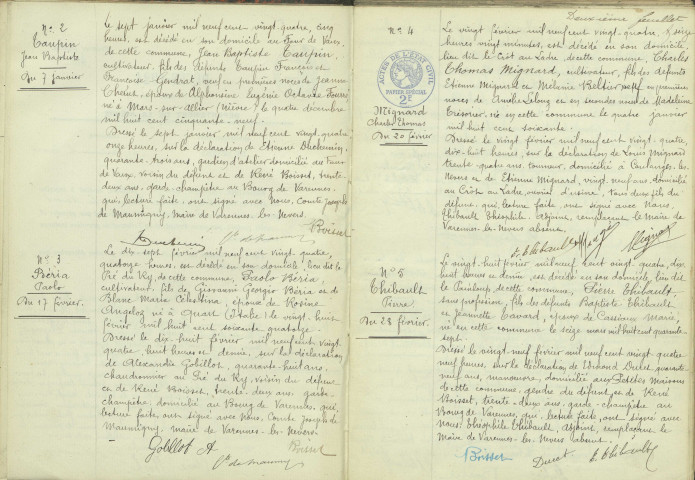 N° 2
Taupin
Jean Baptiste
Du 7 janvier
Le sept janvier mil neuf cent vingt-quatre, cinq
heures, est décédé en son domicile au Four de Vaux,
de cette commune, Jean Baptiste Taupin,
cultivateur, fils des défunts Taupin François et
Françoise Gendrat, veuf en premières noces de Jeanne
époux de Alphonsine Eugénie Octavie
né à Mars-sur-Allier (Nièvre) le quatre décembre
mil huit cent cinquante-neuf.
Dressé le sept janvier mil neuf cent vingt-quatre
onze heures, sur la déclaration de Etienne Duchemin,
quarante-trois ans, gardien d'atelier domicilié au Four de
Vaux, voisin du défunt et de René Boisset, trente-
deux ans, garde champêtre au Bourg de Varennes
qui, lecture faite, ont signé avec Nous, Comte Joseph
de Maumigny, maire de Varennes-les-Nevers.
Boisset
Duchemin
N° 3
Béria
Paolo
Du 17 février.
Le dix-sept février mil neuf cent vingt-quatre,
quatorze heures, est décédé en son domicile, lieu dit le
Pré du Ry, de cette commune, Paolo Béria,
cultivateur, fils de Giovanni Georgio Béria et de
Blanc Maria Célestina, époux de Rosine
Angeloz né à Quart (Italie) le vingt-huit
février mil huit cent soixante-quatorze.
Dressé le dix-huit février mil neuf cent vingt-
quatre huit heures et demie, sur la déclaration
de Alexandre Gobillot, quarante-huit ans,
chaudronnier au Pré du Ry, voisin du défunt
et de René Boisset, trente-deux ans, garde-
champêtre domicilié au Bourg de Varennes, qui,
lecture faite, ont signé avec Nous, Comte Joseph de
Maumigny, maire de Varennes-les-Nevers.
Gobillot A
Boisset
Deuxième feuillet
N° 4
ACTES DE L'ETAT CIVIL
PAPIER SPECIAL
2E
Mignard
Charles Thomas
Du 20 février
Le vingt février mil neuf cent vingt-quatre, à seize
heures vingt minutes, est décédé en son domicile,
lieu dit le Crôt au Ladre, de cette commune, Charles
Thomas Mignard, cultivateur, fils des défunts
Etienne Mignard et Mélanie veuf en premières
noces de Amélie Lebourg et en secondes noces de Madeleine
Trésorier, né en cette commune le quatre janvier
mil huit cent soixante.
Dressé le vingt février mil neuf cent vingt-quatre,
dix-huit heures, sur la déclaration de Louis Mignard
trente-quatre ans, domicilié à Coulanges-les-
Nevers et de Etienne Mignard, vingt-neuf ans, domicilié
au Crôt au Ladre, ouvrier d'usine, tous deux fils du
défunt, qui, lecture faite, ont signé avec Nous,
Thibault Théophile, Adjoint, remplaçant le Maire de
Varennes-les-Nevers absent.
T. Thibault
Mignard
N° 5
Thibault
Pierre.
Du 28 février.
Le vingt-huit février mil neuf cent vingt-quatre, dix
huit heures et demie, est décédé en son domicile, lieu dit
de cette commune, Pierre Thibault,
sans profession, fils des défunts Baptiste Thibault
et Jeannette Tavard, époux de Cassiaux Marie,
né en cette commune le seize mars mil huit cent quarante-
sept.
Dressé le vingt-neuf février mil neuf cent vingt-quatre
neuf heures, sur la déclaration de Edmond Ducrot quarante-
neuf ans, manoeuvre, domicilié aux Petites Maisons
de cette commune, gendre du défunt et de René
Boisset, trente-deux ans, garde-champêtre au
Bourg de Varennes, qui, lecture faite, ont signé avec
Nous, Théophile Thibault, adjoint, remplaçant le
Maire de Varennes-les-Nevers absent.
Boisset
Ducrot
T. Thibault